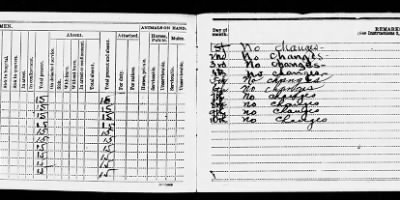 MEN.
ANIMALS ON HAND.
Absent.
Attached.
Horses, Public.
Mules.
Sick in hospital.
Sick in quarters.
In arrest.
In confinement.
Total present.
On detached service.
Sick.
With leave.
Without leave.
In arrest or confinement.
Total absent.
Total present and absent.
For duty.
For rations.
Unserviceable.
Serviceable.
Unserviceable.
15 15
15 15
15 15
15 15
15 15
15 15
15 15
15 15
15 15
15 15
REMARKS
Day of month.
(See Instructions
1st No Changes
2nd No Changes
3rd No Changes
4th No changes
5th No changes
6th No changes
7th No changes
8th No changes
9th No changes
10th No Changes